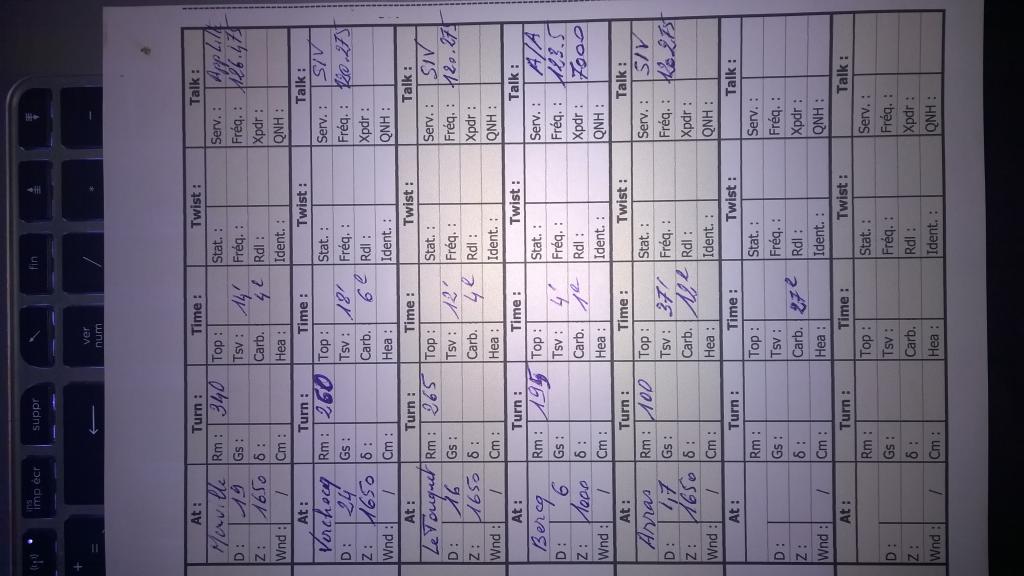 At : Turn : Time : Twist : Talk :
Rm : 340 Top : Stat. : Serv. :
D : 19 Gs : Tsv : 14' Fréq. : Fréq. :
Z : 1650 δ : Carb. 4 l Rdl : Xpdr :
Wnd : / Cm : Hea : Ident. : QNH :
At : Turn : Time : Twist : Talk :
Rm : 260 Top : Stat. : Serv. : SIV
D : 24 Gs : Tsv : 18' Fréq. : Fréq. : 120.275
Z : 1650 δ : Carb. 6 l Rdl : Xpdr :
Wnd : / Cm : Hea : Ident. : QNH :
At : Turn : Time : Twist : Talk :
Le Touquet Rm : 265 Top : Stat. : Serv. : SIV
D : 16 Gs : Tsv : 12' Fréq. : Fréq. : 120.275
Z : 1650 δ : Carb. 4 l Rdl : Xpdr :
Wnd : / Cm : Hea : Ident. : QNH :
At : Turn : Time : Twist : Talk :
Bercq Rm : 195 Top : Stat. : Serv. : A/A
D : 6 Gs : Tsv : 4' Fréq. : Fréq. : 123.5
Z : 1000 δ : Carb. 1 l Rdl : Xpdr : 7000
Wnd : / Cm : Hea : Ident. : QNH :
At : Turn : Time : Twist : Talk :
Arras Rm : 100 Top : Stat. : Serv. : SIV
D : Gs : Tsv : 37' Fréq. : Fréq. :
Z : 1650 δ : Carb. Rdl : Xpdr :
Wnd : / Cm : Hea : Ident. : QNH :
At : Turn : Time : Twist : Talk :
Rm : Top : Stat. : Serv. :
D : Gs : Tsv : Fréq. : Fréq. :
Z : δ : Carb. 27 l Rdl : Xpdr :
Wnd : / Cm : Hea : Ident. : QNH :
At : Turn : Time : Twist : Talk :
Rm : Top : Stat. : Serv. :
D : Gs : Tsv : Fréq. : Fréq. :
Z : δ : Carb. Rdl : Xpdr :
Wnd : / Cm : Hea : Ident. : QNH :
+
=
ins
imp écr
suppr
←
ver
num
fin
/
*
-